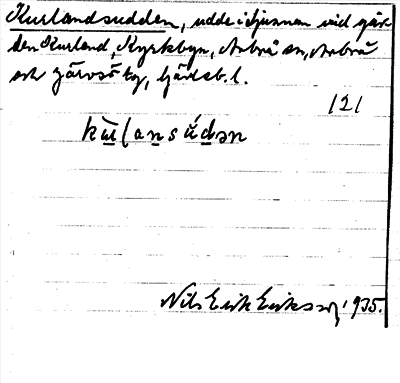 Kurlandsudden, udde i Ljusnan vid går-
den Kurland, Kyrkbyn, Arbrå sn, Arbrå
och Järvsö tg, Gävleb. l.
121
kuḷansúdən
Nils Erik Eriksson, 1935.